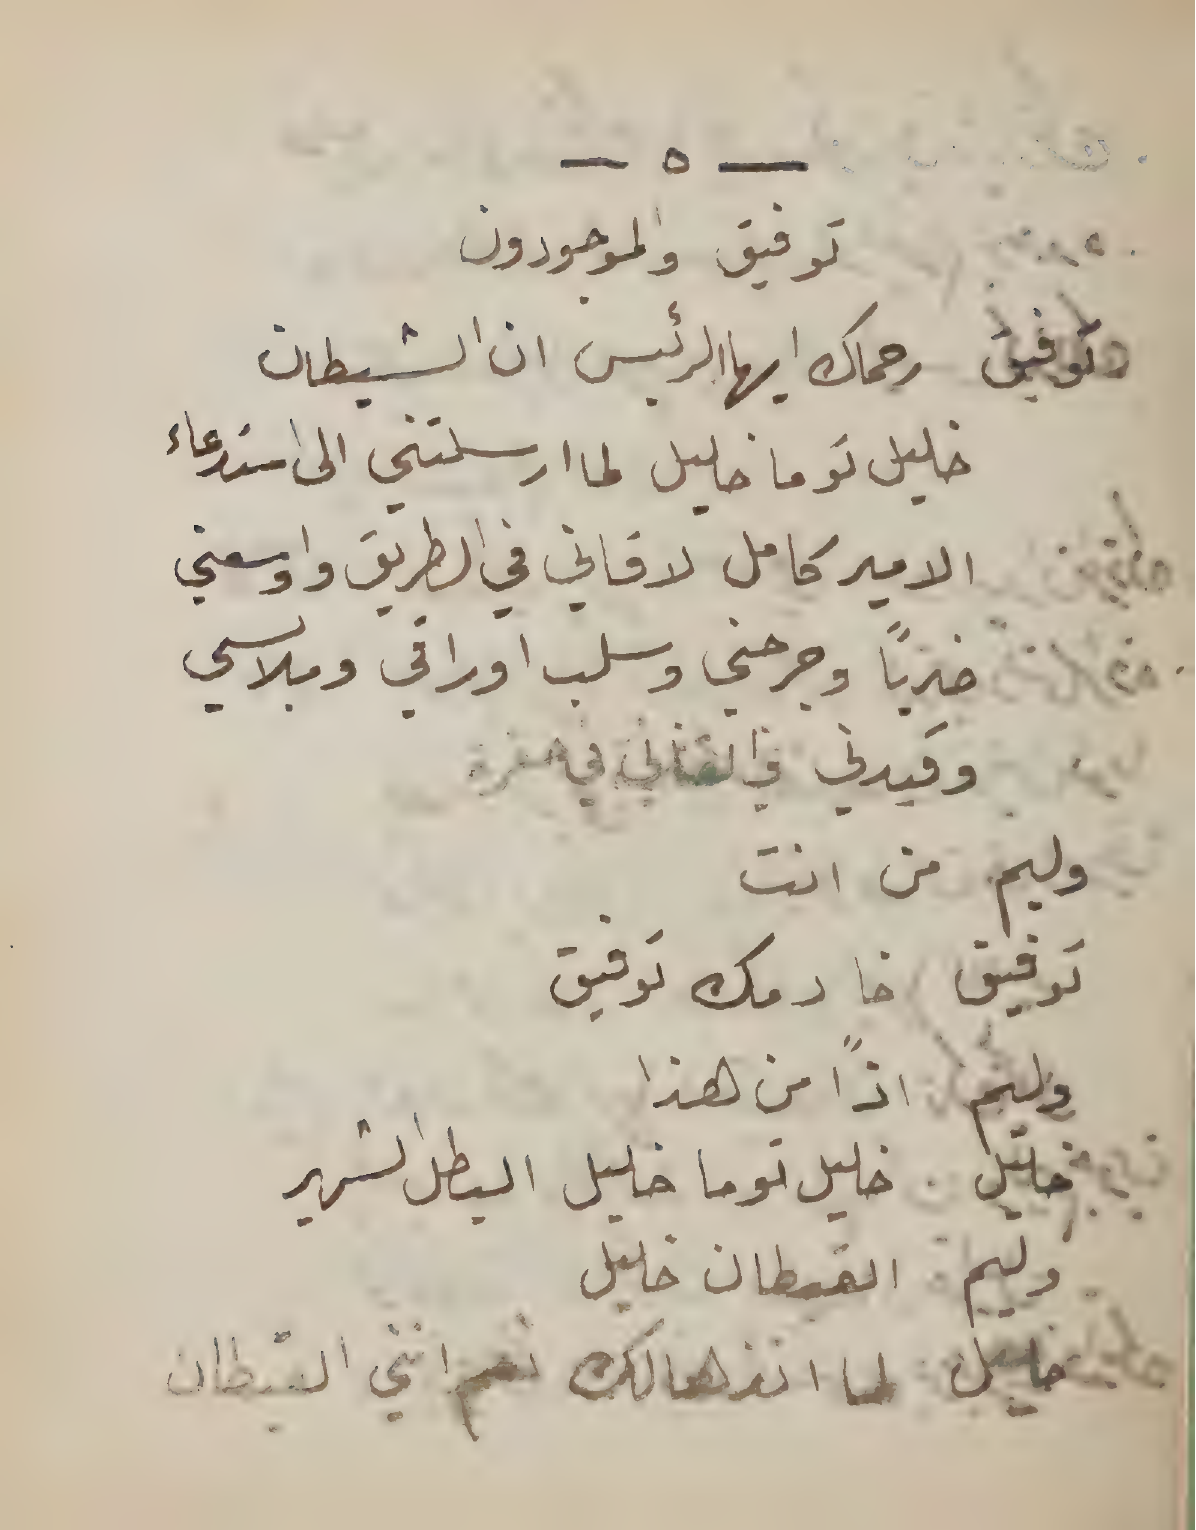 — ٥ —
توفيق والموجودون
توفيق رحماك ايها الرئيس ان الشيطان
خليل توما خليل لما ارسلتني الى استدعاء
الامير كامل لاقاني في الطريق واوسعني
ضربًا وجرحني وسلب اوراقي وملابسي
وقيدني في
وليم من انت
توفيق خادمك توفيق
وليم اذًا من هذا
خليل خليل توما خليل البطل الشهير
وليم القبطان خليل
خليل لما انذهالك نعم انني القبطان